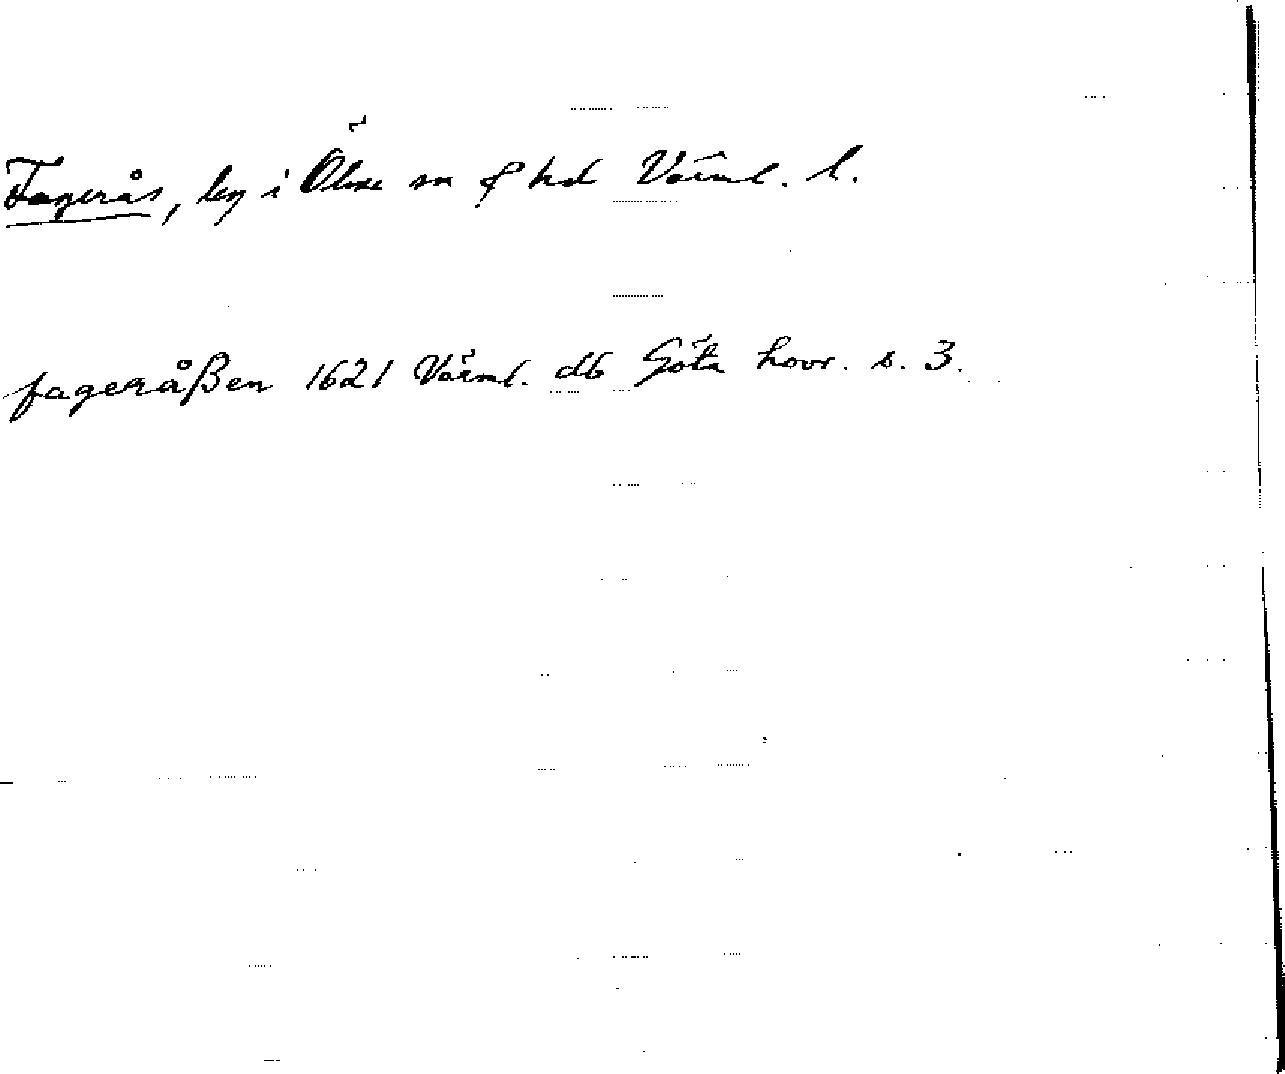 Fagerås, lzg i Ölme sn o hd Värml. l.
fageråßen 1621 Värml. db Göta hovr. s. 3.